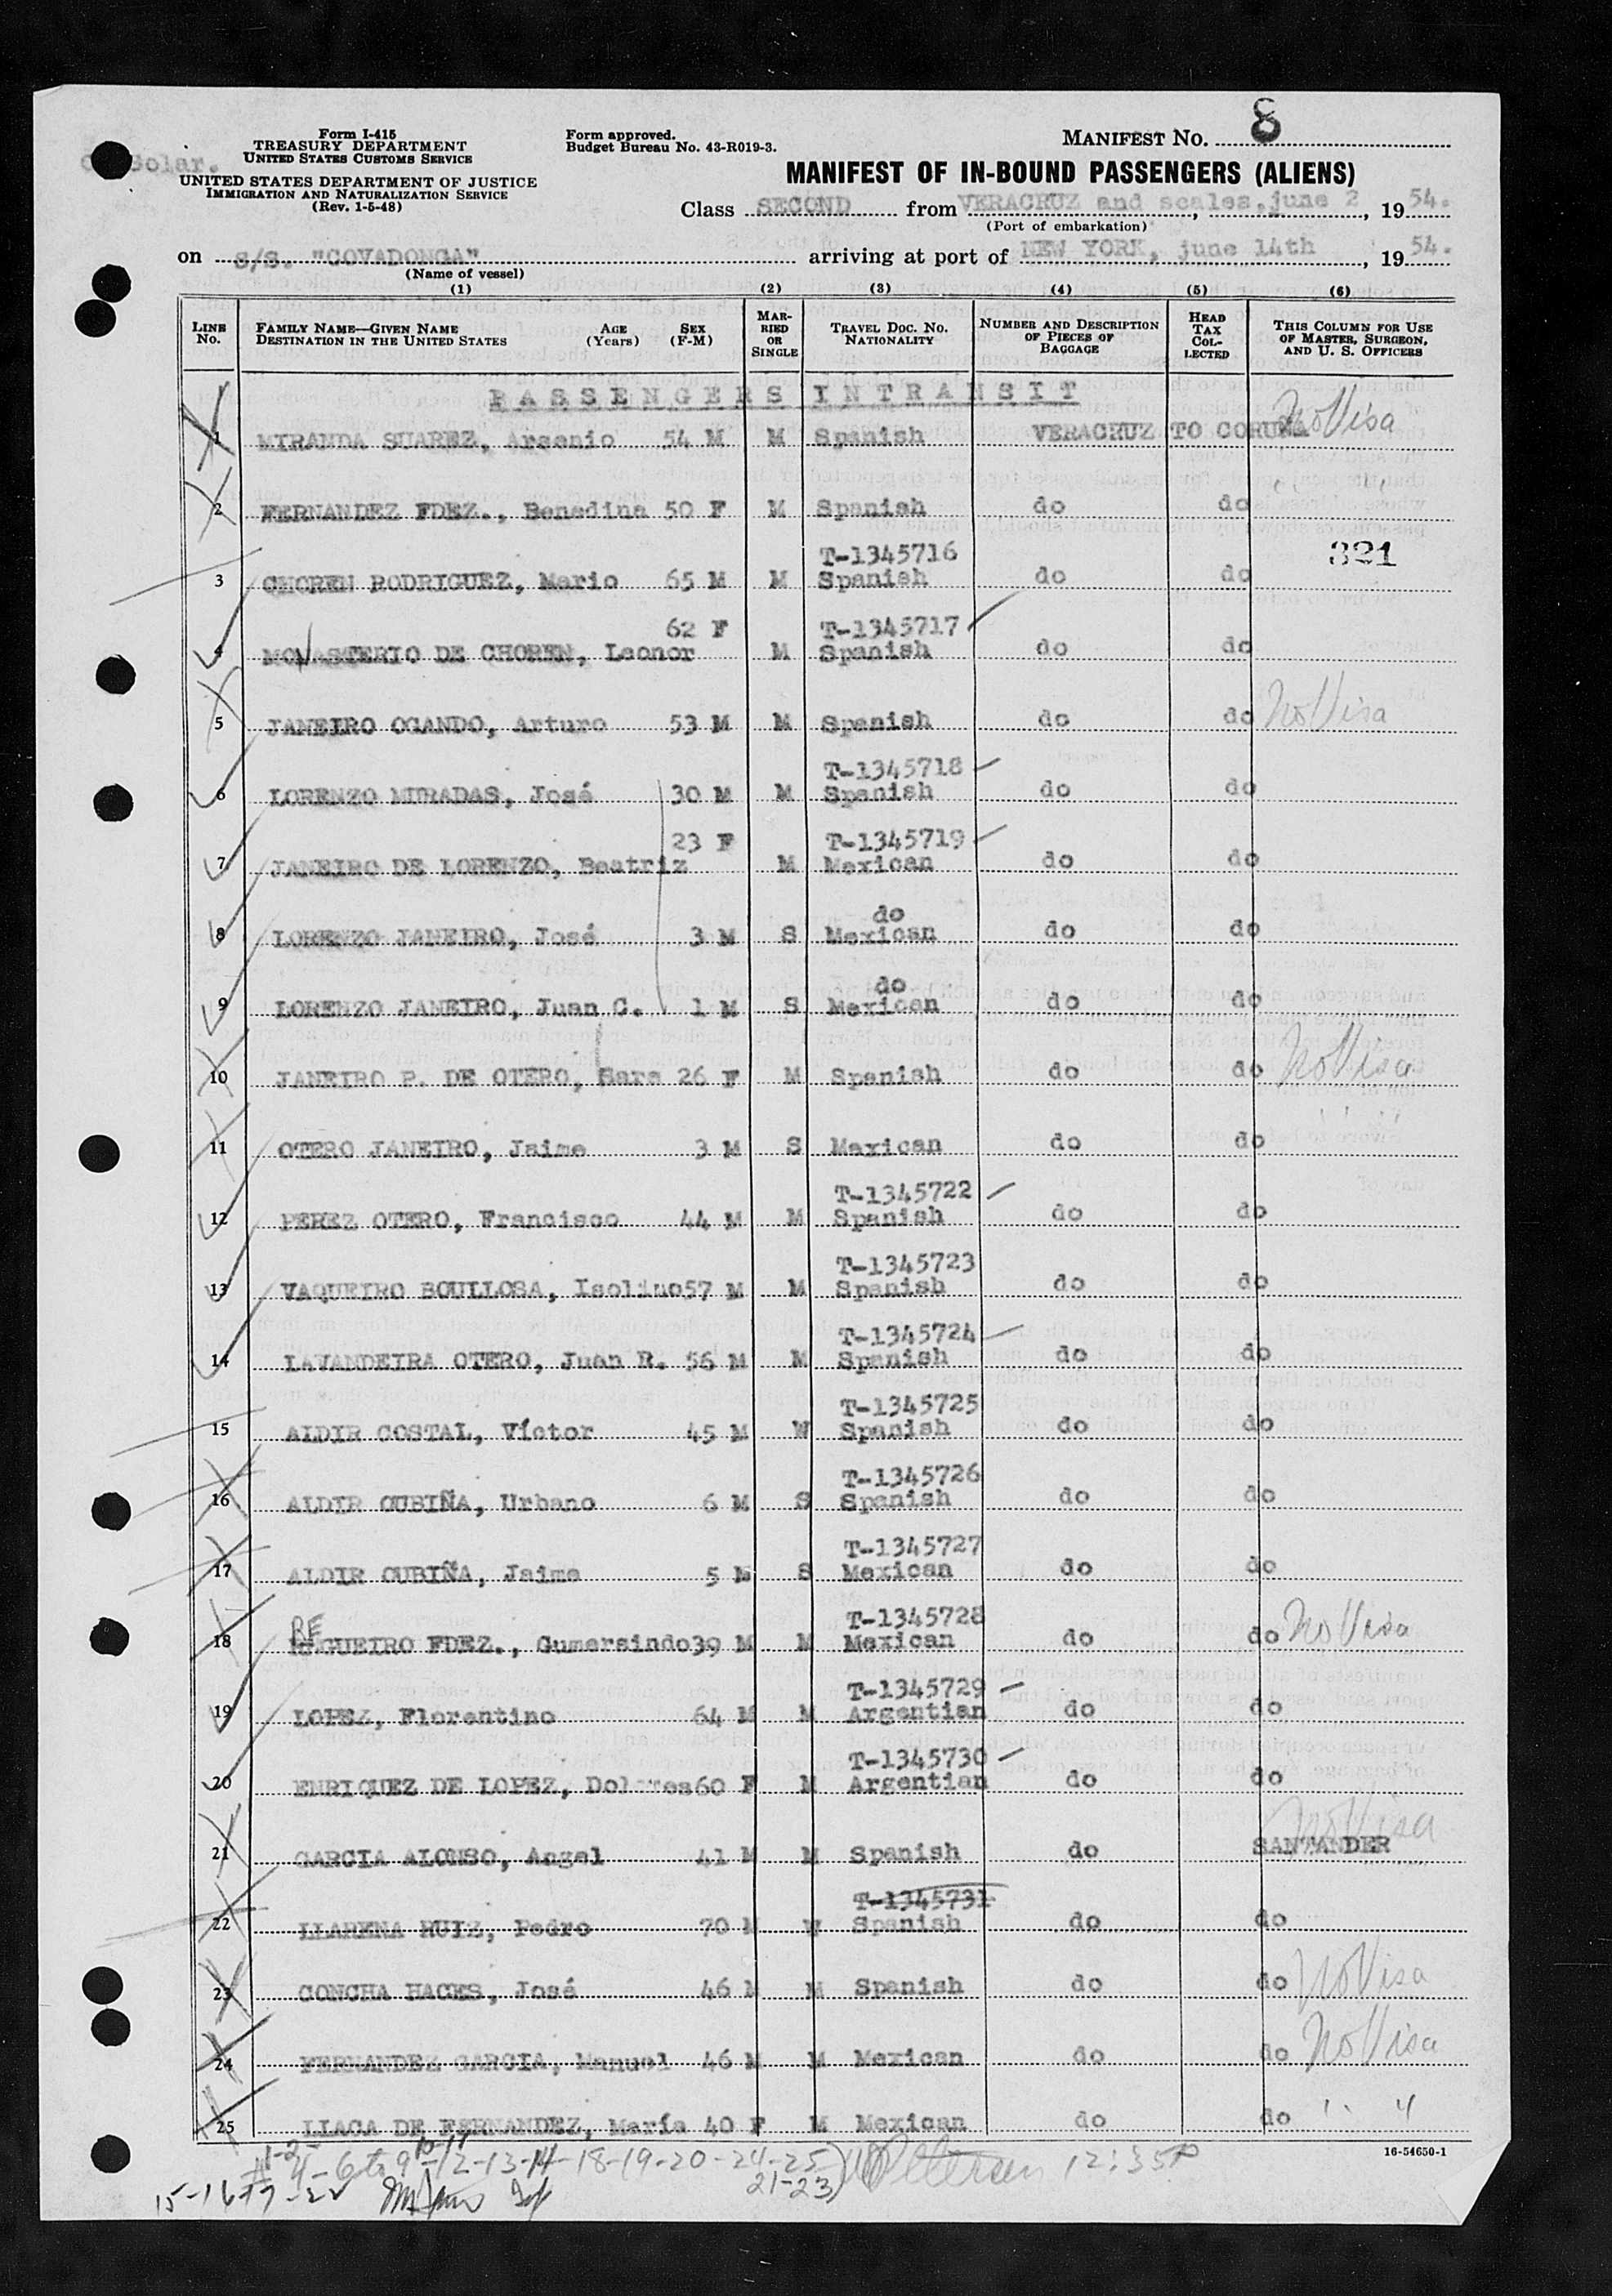 Form I-415
TREASURY DEPARTMENT
UNITED STATES CUSTOMS SERVICE
UNITED STATES DEPARTMENT OF JUSTICE
IMMIGRATION AND NATURALIZATION SERVICE
(Rev. 1-5-48)
Form approved.
Budget Bureau No. 43-R019-3.
MANIFEST No. 8
MANIFEST OF IN-BOUND PASSENGERS (ALIENS)
Class SECOND from VERACRUZ and scales, june 2, 1954.
(Port of embarkation)
on s/s. "COVADONGA" arriving at port of NEW YORK, june 14th, 1954.
(Name of vessel)
(1) (2) (3) (4) (5) (6)
LINE No. FAMILY NAME—GIVEN NAME DESTINATION IN THE UNITED STATES AGE (Years) SEX (F-M) MARRIED OR SINGLE TRAVEL DOC. No. NATIONALITY NUMBER AND DESCRIPTION OF PIECES OF BAGGAGE HEAD TAX COLLECTED THIS COLUMN FOR USE OF MASTER, SURGEON, AND U. S. OFFICERS
PASSENGERS IN TRANSIT
1 MIRANDA SUAREZ, Arsenio 54 M M Spanish VERACRUZ TO CORUÑA No Visa
2 FERNANDEZ FDEZ., Benedina 50 F M Spanish do do
3 CHOREN RODRIGUEZ, Mario 65 M M T-1345716 Spanish do do 321
4 MONASTERIO DE CHOREN, Leonor 62 F M T-1345717 Spanish do do
5 JANEIRO OGANDO, Arturo 53 M M Spanish do do No Visa
6 LORENZO MIRADAS, José 30 M M T-1345718 Spanish do do
7 JANEIRO DE LORENZO, Beatriz 23 F M T-1345719 Mexican do do
8 LORENZO JANEIRO, José 3 M S do Mexican do do
9 LORENZO JANEIRO, Juan C. 1 M S do Mexican do do
10 JANEIRO P. DE OTERO, Sara 26 F M Spanish do do No Visa
11 OTERO JANEIRO, Jaime 3 M S Mexican do do
12 PEREZ OTERO, Francisco 44 M M T-1345722 Spanish do do
13 VAQUEIRO BOULLOSA, Isolino 57 M M T-1345723 Spanish do do
14 LAVANDEIRA OTERO, Juan R. 56 M M T-1345724 Spanish do do
15 ALDIR COSTAL, Víctor 45 M W T-1345725 Spanish do do
16 ALDIR CUBIÑA, Urbano 6 M S T-1345726 Spanish do do
17 ALDIR CUBIÑA, Jaime 5 M S T-1345727 Mexican do do
18 REGUEIRO FDEZ., Gumersindo 39 M M T-1345728 Mexican do do No Visa
19 LOPEZ, Florentino 64 M M T-1345729 Argentian do do
20 ENRIQUEZ DE LOPEZ, Dolores 60 F M T-1345730 Argentian do do
21 GARCIA ALONSO, Angel 41 M M Spanish do SANTANDER No Visa
22 LLARENA RUIZ, Pedro 70 M W T-1345731 Spanish do do
23 CONCHA HACES, José 46 M M Spanish do do No Visa
24 FERNANDEZ GARCIA, Manuel 46 M M Mexican do do No Visa
25 LIACA DE FERNANDEZ, María 40 F M Mexican do do
16-54650-1
1-2- 10-11
4-6 to 9-12-13-14-18-19-20-24-25 12:35P
21-23
15-16-17-22